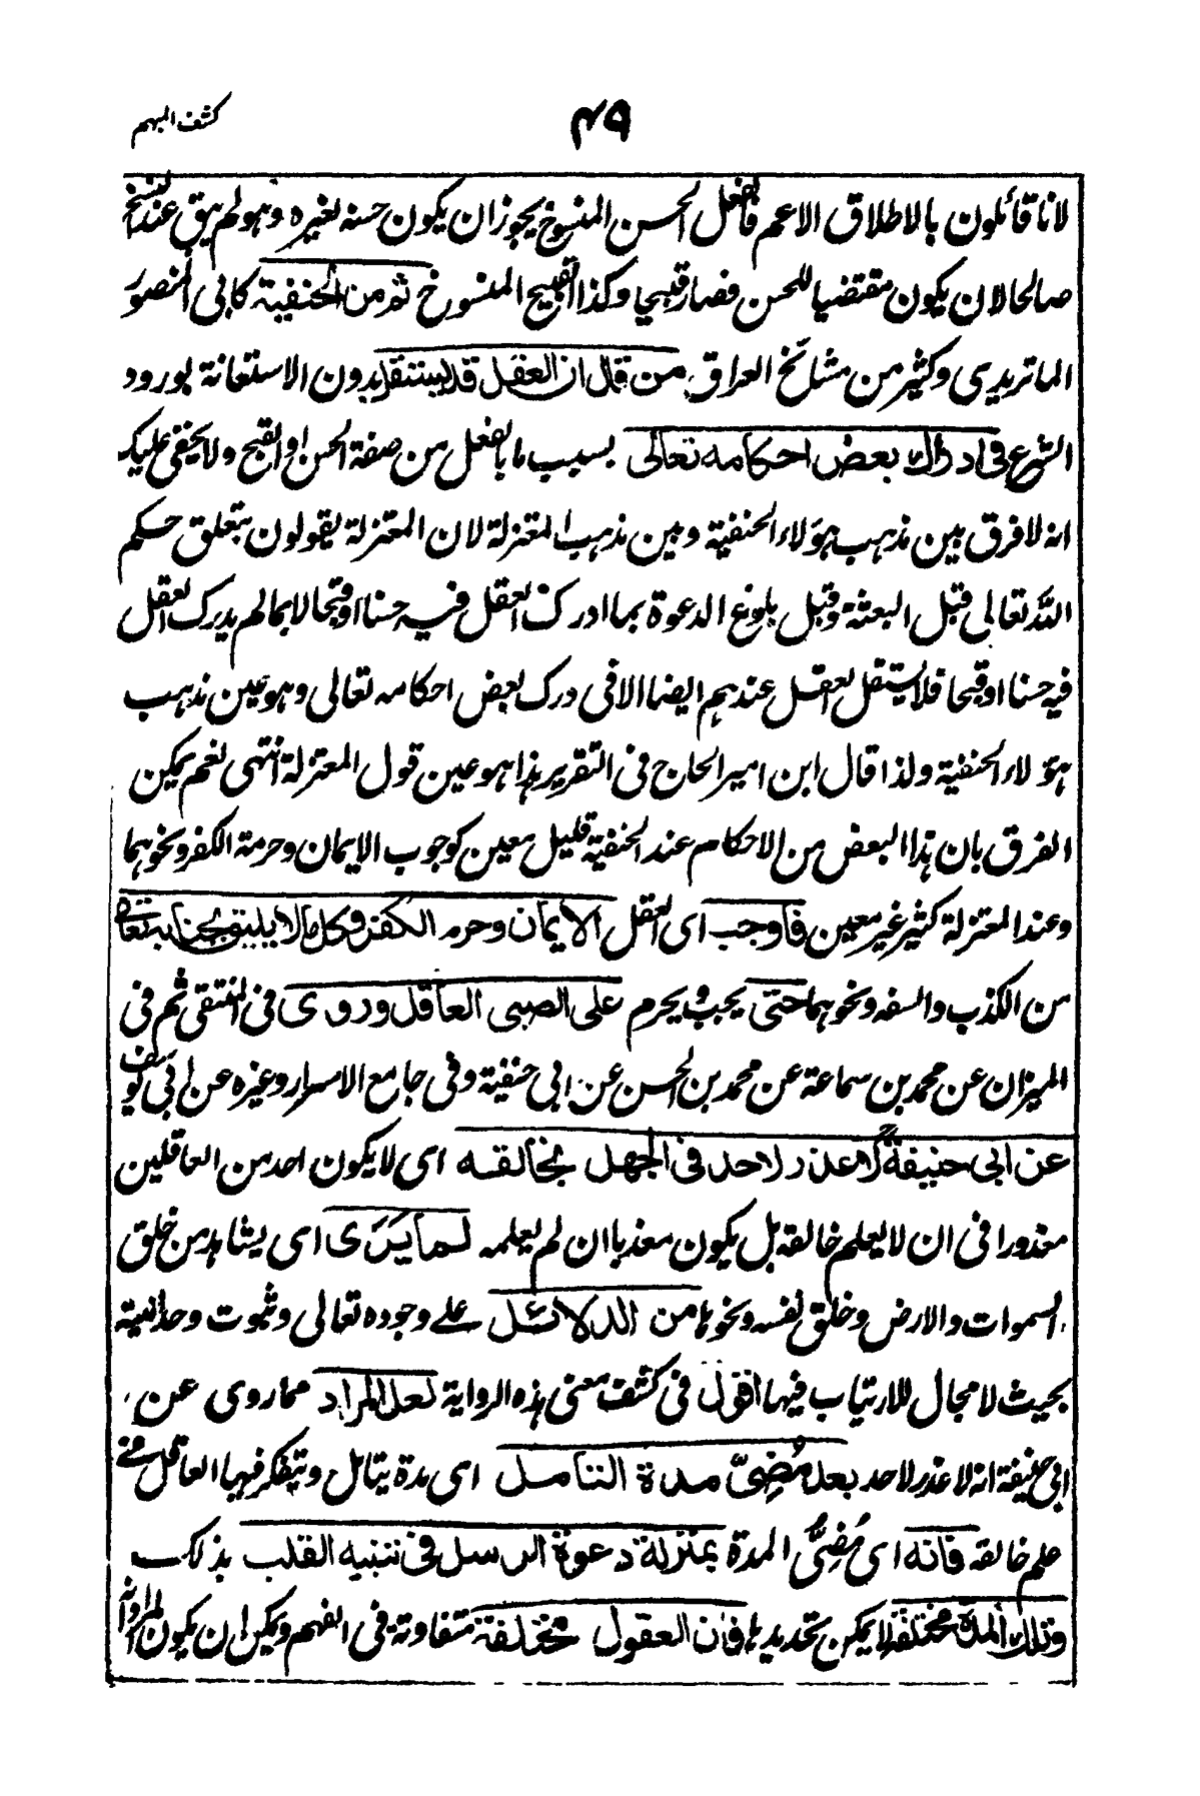 كشف المبهم
٤٩
لانا قائلون بالاطلاق الاعم فالفعل الحسن المنسوخ يجوز ان يكون حسنه لغيره وهو لم يبق عند النسخ
صالحا لان يكون مقتضيا للحسن فصار قبيحا وكذا القبيح المنسوخ ثم من الحنفية كابى المنصور
الماتريدى وكثير من مشائخ العراق من قال ان العقل قد يستقل بدون الاستعانة بورود
الشرع فى ادراك بعض احكامه تعالى بسبب ما بالفعل من صفة الحسن او القبح ولا يخفى عليك
انه لا فرق بين مذهب هؤلاء الحنفية وبين مذهب المعتزلة لان المعتزلة يقولون بتعلق حكم
الله تعالى قبل البعثة وقبل بلوغ الدعوة بما ادرك العقل فيه حسنا او قبحا لا بما لم يدرك العقل
فيه حسنا او قبحا فلا يستقل العقل عندهم ايضا الا فى درك بعض احكامه تعالى وهو عين مذهب
هؤلاء الحنفية ولذا قال ابن امير الحاج فى التقرير هذا هو عين قول المعتزلة انتهى نعم يمكن
الفرق بان هذا البعض من الاحكام عند الحنفية قليل معين كوجوب الايمان وحرمة الكفر ونحوهما
وعند المعتزلة كثير غير معين فاوجب اى العقل الايمان وحرم الكفر وكل ما لا يليق بجنابه تعالى
من الكذب والسفه ونحوهما حتى يجب ويحرم على الصبى العاقل وروى فى المنتقى ثم فى
الميزان عن محمد بن سماعة عن محمد بن الحسن عن ابى حنيفة وفى جامع الاسرار وغيره عن ابى يوسف
عن ابى حنيفة لا عذر لاحد فى الجهل بخالقه اى لا يكون احد من العاقلين
معذورا فى ان لا يعلم خالقه بل يكون معذبا ان لم يعلمه لما يَرَى اى يشاهد من خلق
السموات والارض وخلق نفسه ونحوها من الدلائل على وجوده تعالى وثبوت وحدانيته
بحيث لا مجال للارتياب فيها اقول فى كشف معنى هذه الرواية لعل المراد مما روى عن
ابى حنيفة انه لا عذر لاحد بعد مُضِىّ مدة التامل اى مدة يتامل ويتفكر فيها العاقل فى
علم خالقه فانه اى مُضِىُّ المدة بمنزلة دعوة الرسل فى تنبيه القلب بذلك
وتلك المدة مختلفة لا يمكن تحديدها فان العقول مختلفة متفاوتة فى الفهم ويمكن ان يكون المراد انه